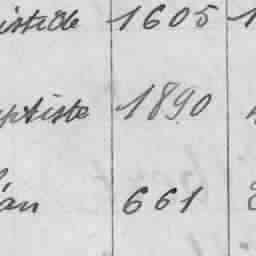 istide 1605
aptiste 1890
án 661